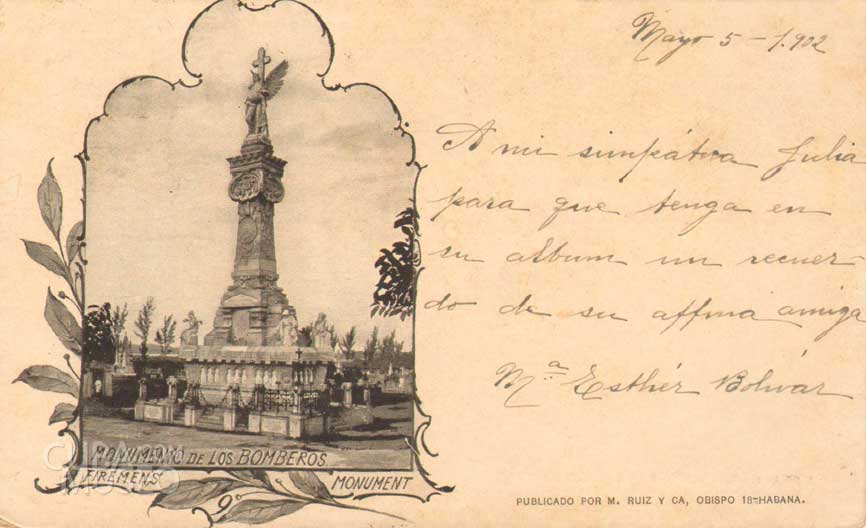 Mayo 5 - 1.902
A mi simpática Julia
para que tenga en
su album un recuer-
do de su affma amiga
Mª Esthér Bolívar
MONUMENTO DE LOS BOMBEROS
FIREMEN'S MONUMENT
9º
PUBLICADO POR M. RUIZ Y CA, OBISPO 18-HABANA.